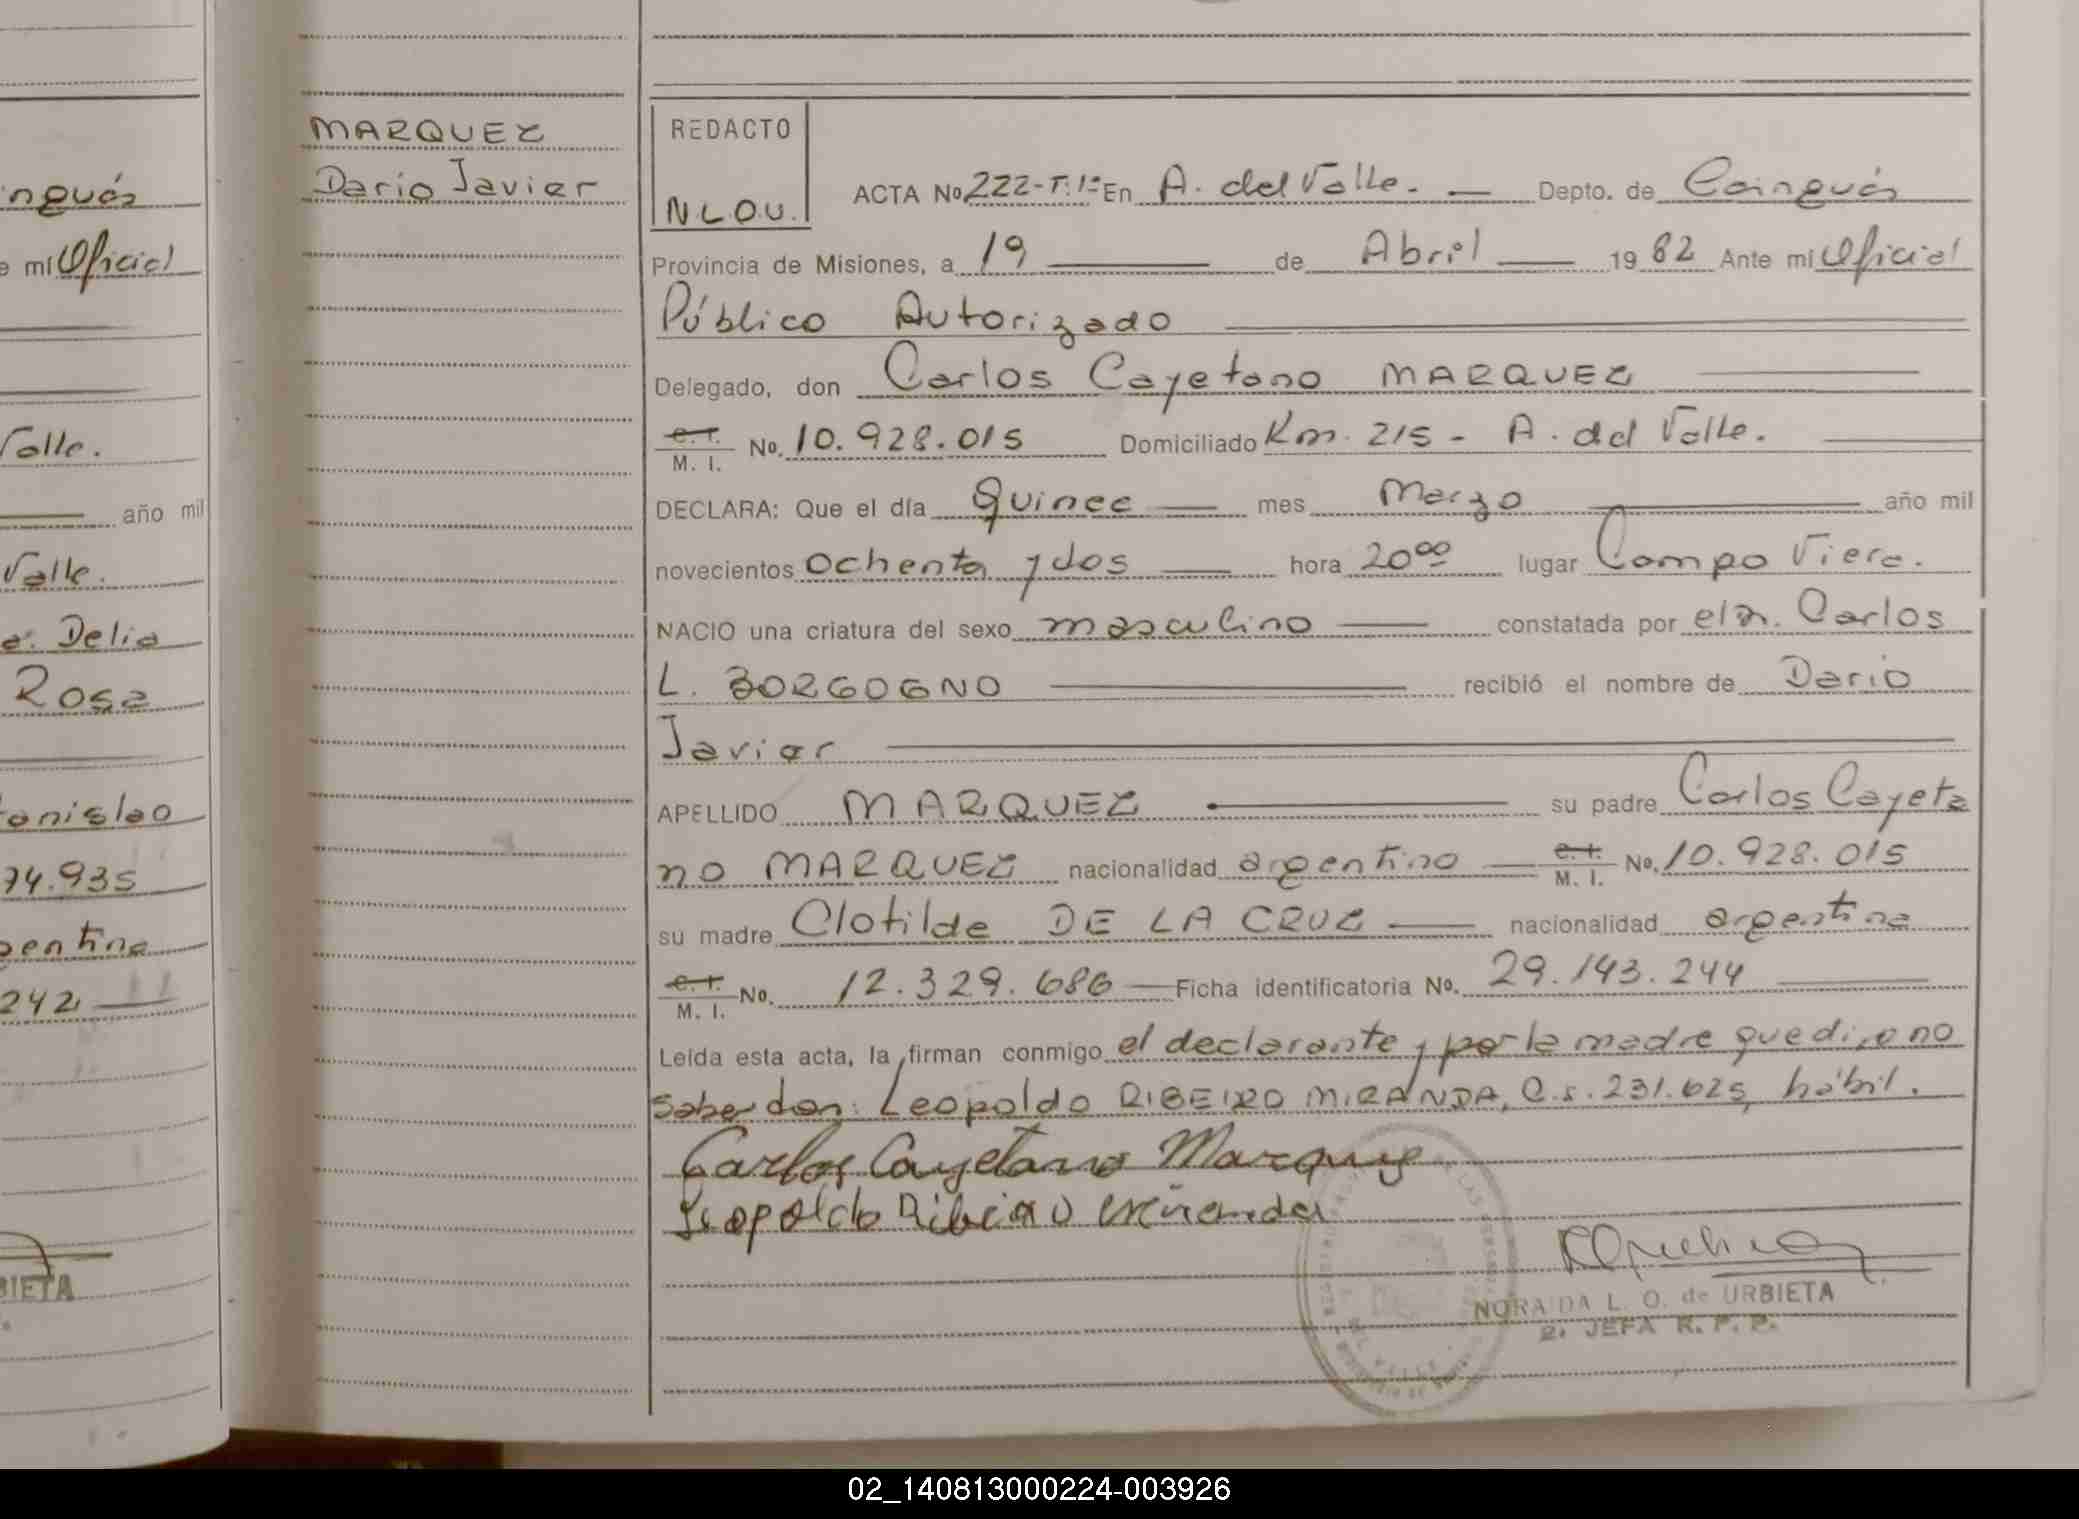 MARQUEZ
Dario Javier
REDACTO
N.L.O.U.
ACTA No 222-T.1º En A. del Valle. — Depto. de Cainguás
Provincia de Misiones, a 19 — de Abril — 1982 Ante mí Oficial
Público Autorizado —
Delegado, don Carlos Cayetano MARQUEZ —
C. I. / M. I. No. 10.928.015 Domiciliado Km. 215 - A. del Valle. —
DECLARA: Que el día Quince — mes Marzo — año mil
novecientos Ochenta y dos — hora 20⁰⁰ lugar Campo Viera.
NACIO una criatura del sexo masculino — constatada por el Dr. Carlos
L. BORGOGNO — recibió el nombre de Dario
Javier —
APELLIDO MARQUEZ — su padre Carlos Cayeta
no MARQUEZ nacionalidad argentino — C. I. / M. I. No. 10.928.015
su madre Clotilde DE LA CRUZ — nacionalidad argentina
C. I. / M. I. No. 12.329.686 — Ficha identificatoria No. 29.143.244 —
Leída esta acta, la firman conmigo el declarante y por la madre que dijo no
saber don: Leopoldo RIBEIRO MIRANDA, C.I. 231.625, hábil.
Carlos Cayetano Marquez
Leopoldo Ribeiro Miranda
NORAIDA L. O. de URBIETA
JEFA R. P. P.
nguás
e mí Oficial
Valle.
año mil
Valle.
a. Delia
Rosa
tanislao
74.935
gentina
242 —
BIETA
02_140813000224-003926